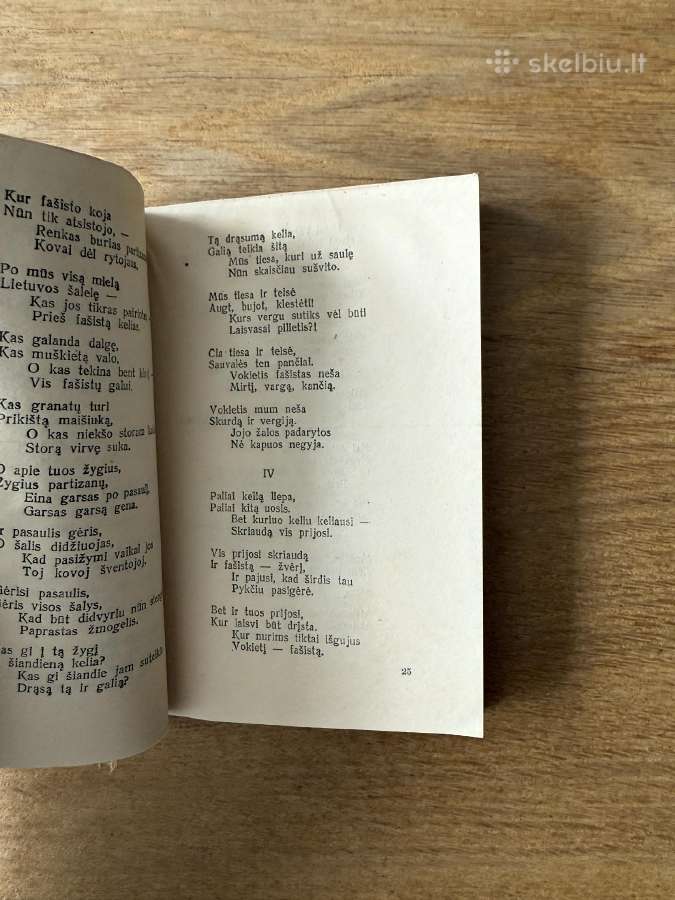 skelbiu.lt
Kur fašisto koja
Nūn tik atsistojo, —
Renkas būrias
Koval dėl rytojaus.
Po mūs visą mielą
Lietuvos šalelę —
Kas jos tikras
Prieš fašistą kelias.
Kas galanda dalgę,
Kas muškietą valo,
O kas tekina bent
Vis fašistų galui.
Kas granatų turi
Prikištą maišiuką,
O kas niekšo storam
Storą virvę suka.
O apie tuos žygius,
Žygius partizanų,
Eina garsas po pasaulį,
Garsas garsą gena.
Ir pasaulis gėris,
O šalis didžiuojas,
Kad pasižymi vaikai jos
Toj kovoj šventojoj.
Gėrisi pasaulis,
Gėris visos šalys,
Kad būt didvyriu nūn
Paprastas žmogelis.
Kas gi į tą žygį
šiandieną kelia?
Kas gi šiandie jam suteikia
Drąsą tą ir galią?
Tą drąsumą kelia,
Galią teikia šitą
Mūs tiesa, kuri už saulę
Nūn skaisčiau sušvito.
Mūs tiesa ir teisė
Augt, bujot, klestėti!
Kurs vergu sutiks vėl būti
Laisvasai pilietis?!
Čia tiesa ir teisė,
Sauvalės ten pančiai.
Vokietis fašistas neša
Mirtį, vargą, kančią.
Vokietis mum neša
Skurdą ir vergiją.
Jojo žalos padarytos
Nė kapuos negyja.
IV
Paliai kelią liepa,
Paliai kitą uosis.
Bet kuriuo keliu keliausi —
Skriaudą vis prijosi.
Vis prijosi skriaudą
Ir fašistą — žvėrį,
Ir pajusi, kad širdis tau
Pykčiu pasigėrė.
Bet ir tuos prijosi,
Kur laisvi būt drįsta.
Kur nurims tiktai išgujus
Vokietį — fašistą.
25